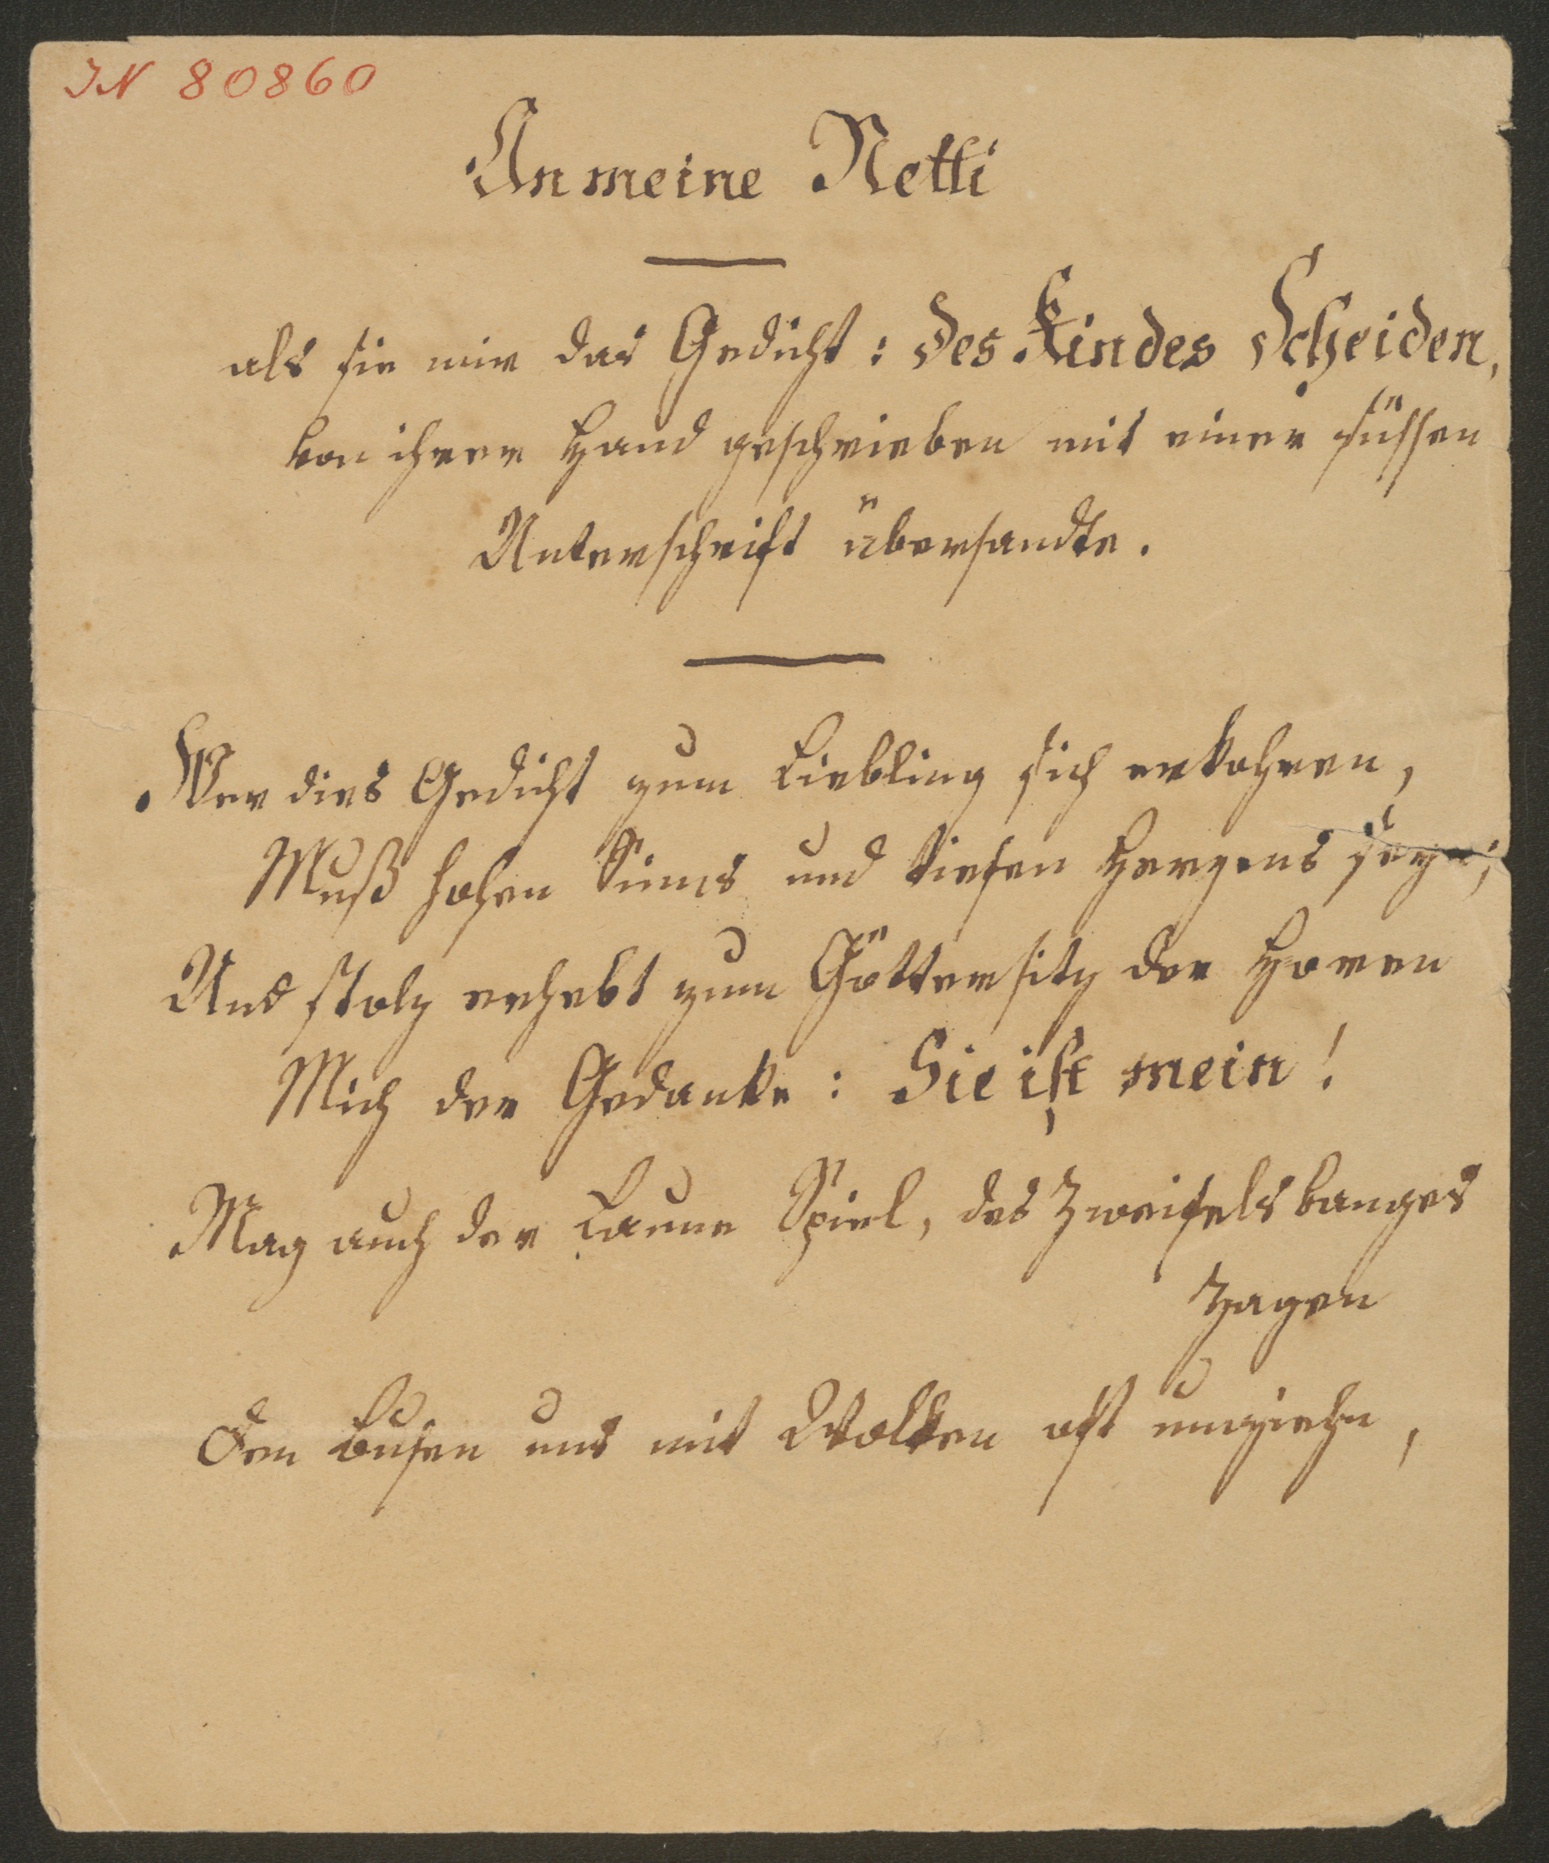 IN 80860
An meine Netti
als sie mir das Gedicht: Des Kindes Scheiden,
von ihrer Hand geschrieben mit einer süssen
Unterschrift übersandte.
Wer dies Gedicht zum Liebling sich erkohren,
Muß hohen Sinns und tiefen Herzens seyn;
Und stolz erhebt zum Göttersitz der Horen
Mich der Gedanke: Sie ist mein!
Mag auch der Laune Spiel, des Zweifels banges
Zagen
Den Busen uns mit Wolken oft umziehn,